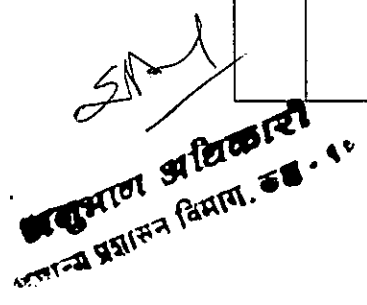 अनुभाग अधिकारी
सामान्य प्रशासन विभाग, कक्ष - १०